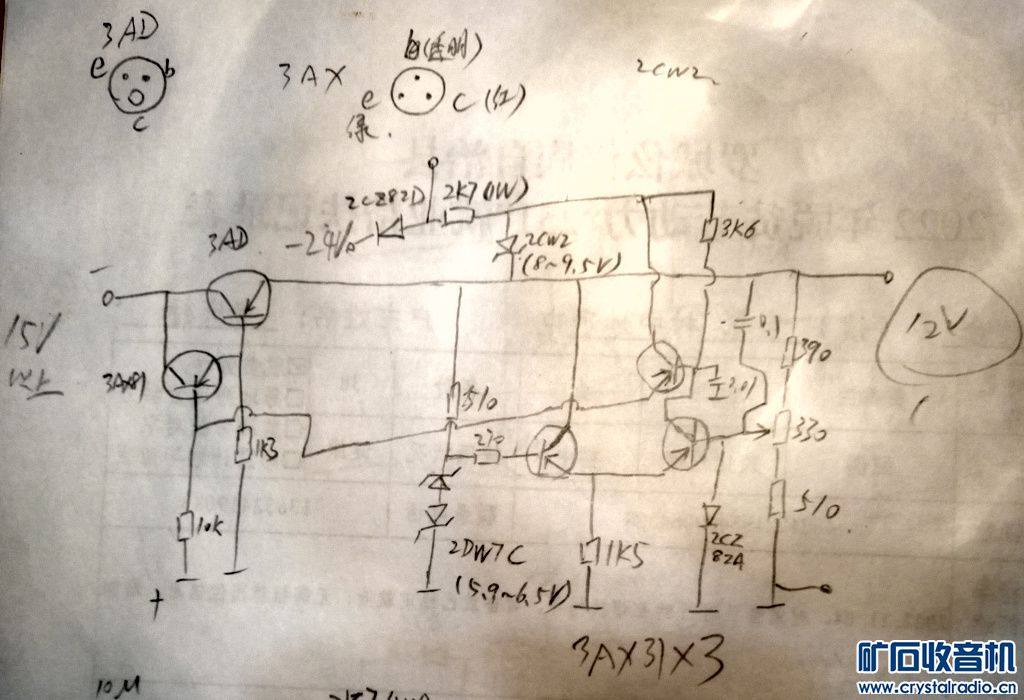 3AD
e b
c
3AX
e c (红)
绿.
2CW2
2CZ82D 2K7(1W)
3AD -24V
2CW2
(8~9.5V)
3K6
-
15V
以上
3AX81
12V
0.1
390
0.01
510
270
330
1K3
10K
2DW7C
(5.9~6.5V)
1K5
2CZ
82A
510
+
3AX31×3
10M
矿石收音机
www.crystalradio.cn